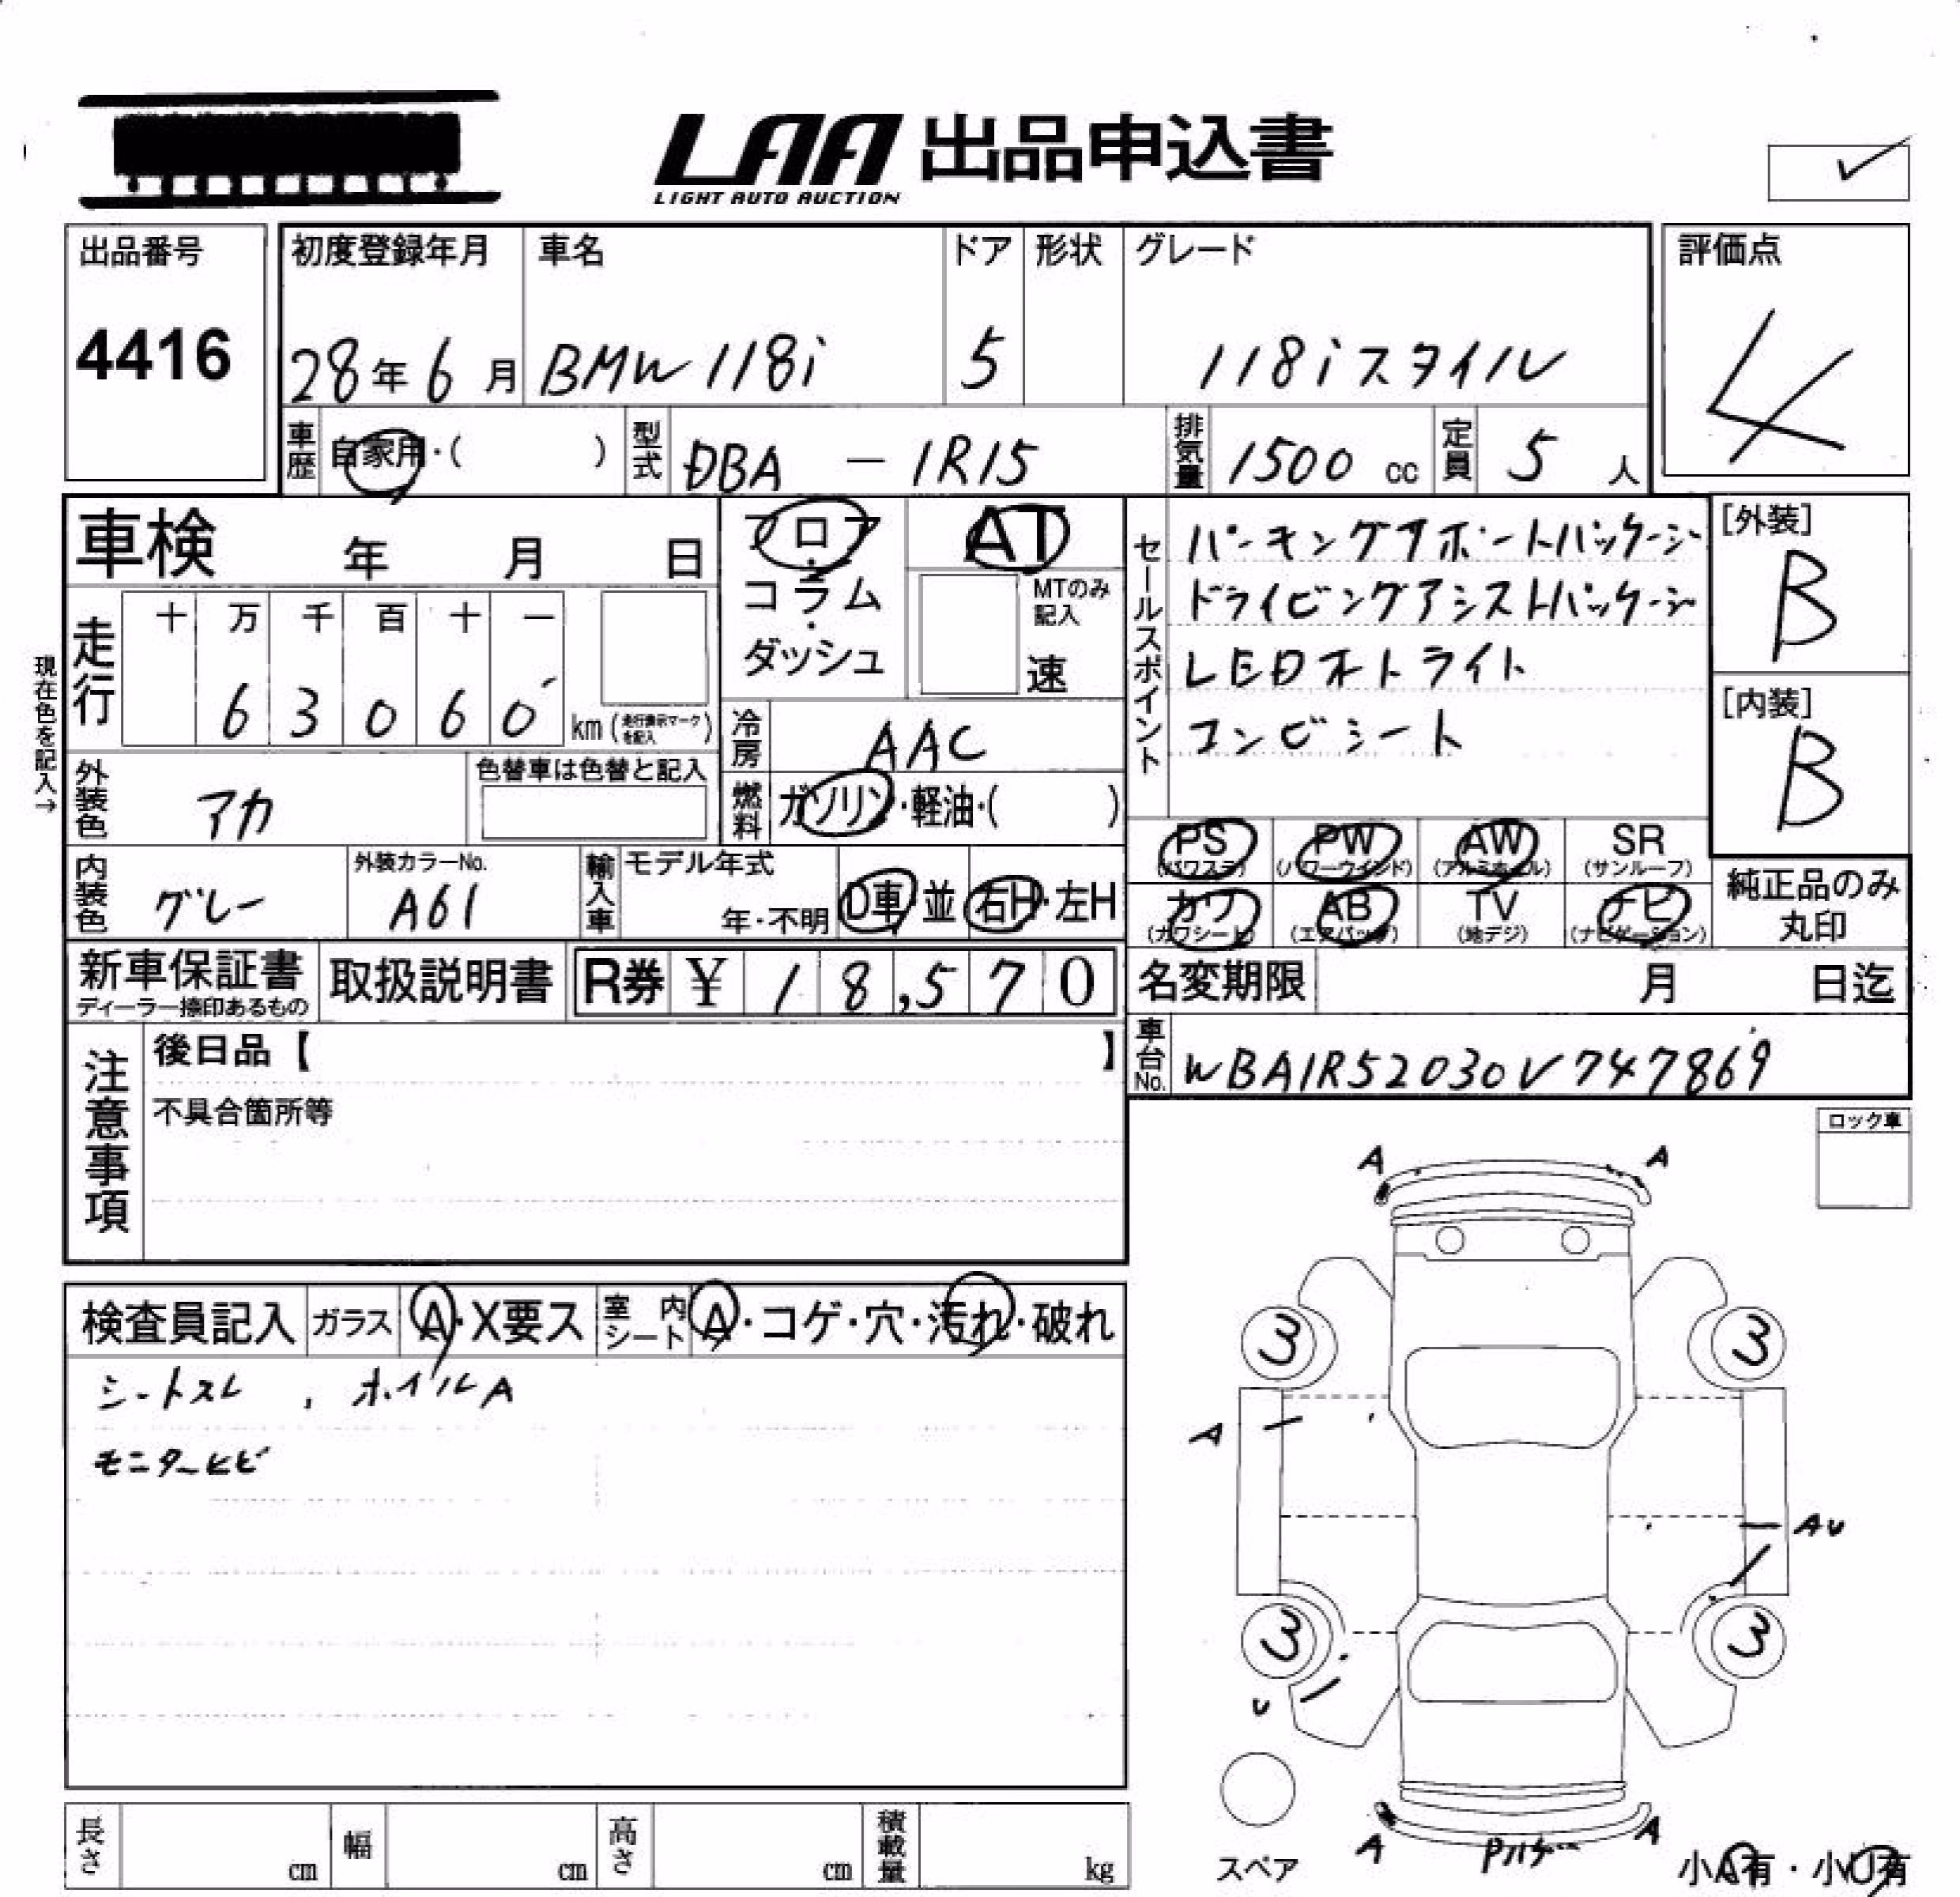 LAA 出品申込書
LIGHT AUTO AUCTION
出品番号 初度登録年月 車名 ドア 形状 グレード 評価点
4416 28年6月 BMW 118i 5 118iスタイル 4
車歴 自家用・( ) 型式 DBA - 1R15 排気量 1500 cc 定員 5 人
車検 年 月 日
フロア・コラム・ダッシュ
AT
MTのみ記入
速
セールスポイント
パーキングサポートパッケージ
ドライビングアシストパッケージ
LEDオトライト
コンビシート
[外装]
B
[内装]
B
現在色を記入→
走行 十 万 千 百 十 一
6 3 0 6 0 km (走行表示マークを記入)
冷房 AAC
外装色 アカ 色替車は色替と記入
燃料 ガソリン・軽油・( )
内装色 グレー 外装カラーNo. A61
輸入車 モデル年式 年・不明 D車・並 右H・左H
PS (パワステ) PW (パワーウインド) AW (アルミホイール) SR (サンルーフ)
カワ (カワシート) AB (エアバッグ) TV (地デジ) ナビ (ナビゲーション)
純正品のみ丸印
新車保証書 ディーラー捺印あるもの 取扱説明書 R券 ¥ 18,570
名変期限 月 日迄
車台No. WBA1R52030V747869
注意事項
後日品【 】
不具合箇所等
ロック車
検査員記入 ガラス A・X要ス 室内シート A・コゲ・穴・汚れ・破れ
シートスレ , ホイルA
モニターヒビ
A A
3 3
A
AU
3 3
U
A A
スペア
小A有・小U有
長さ cm 幅 cm 高さ cm 積載量 kg